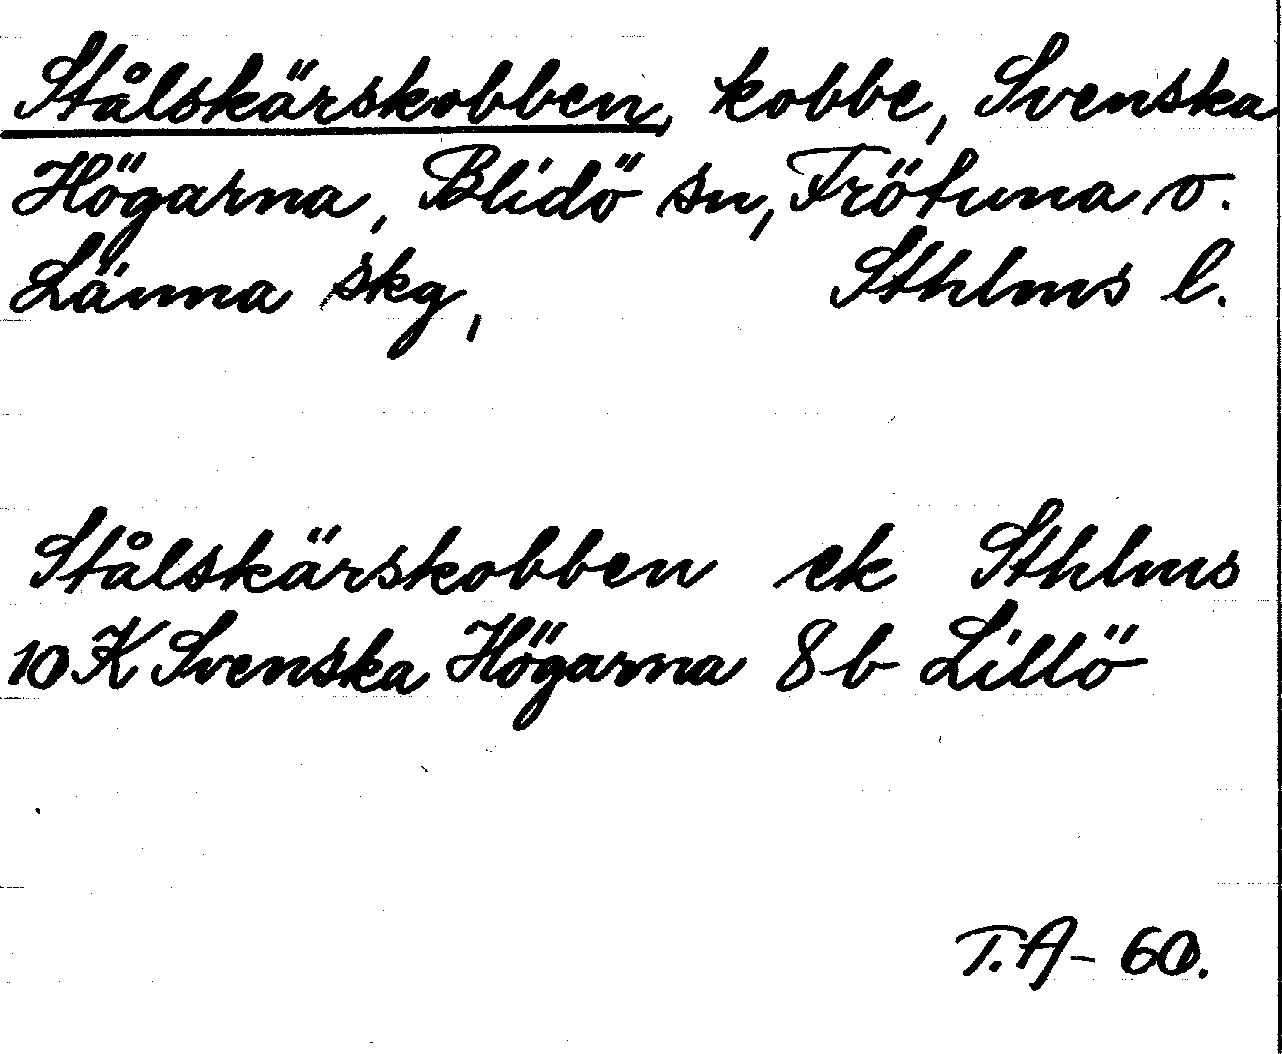 Stålskärskobben, kobbe, Svenska
Högarna, Blidö sn, Frötuna o.
Länna skg, Sthlms l.
Stålskärskobben ek Sthlms
10 K Svenska Högarna 8 b Lillö
T.A - 60.